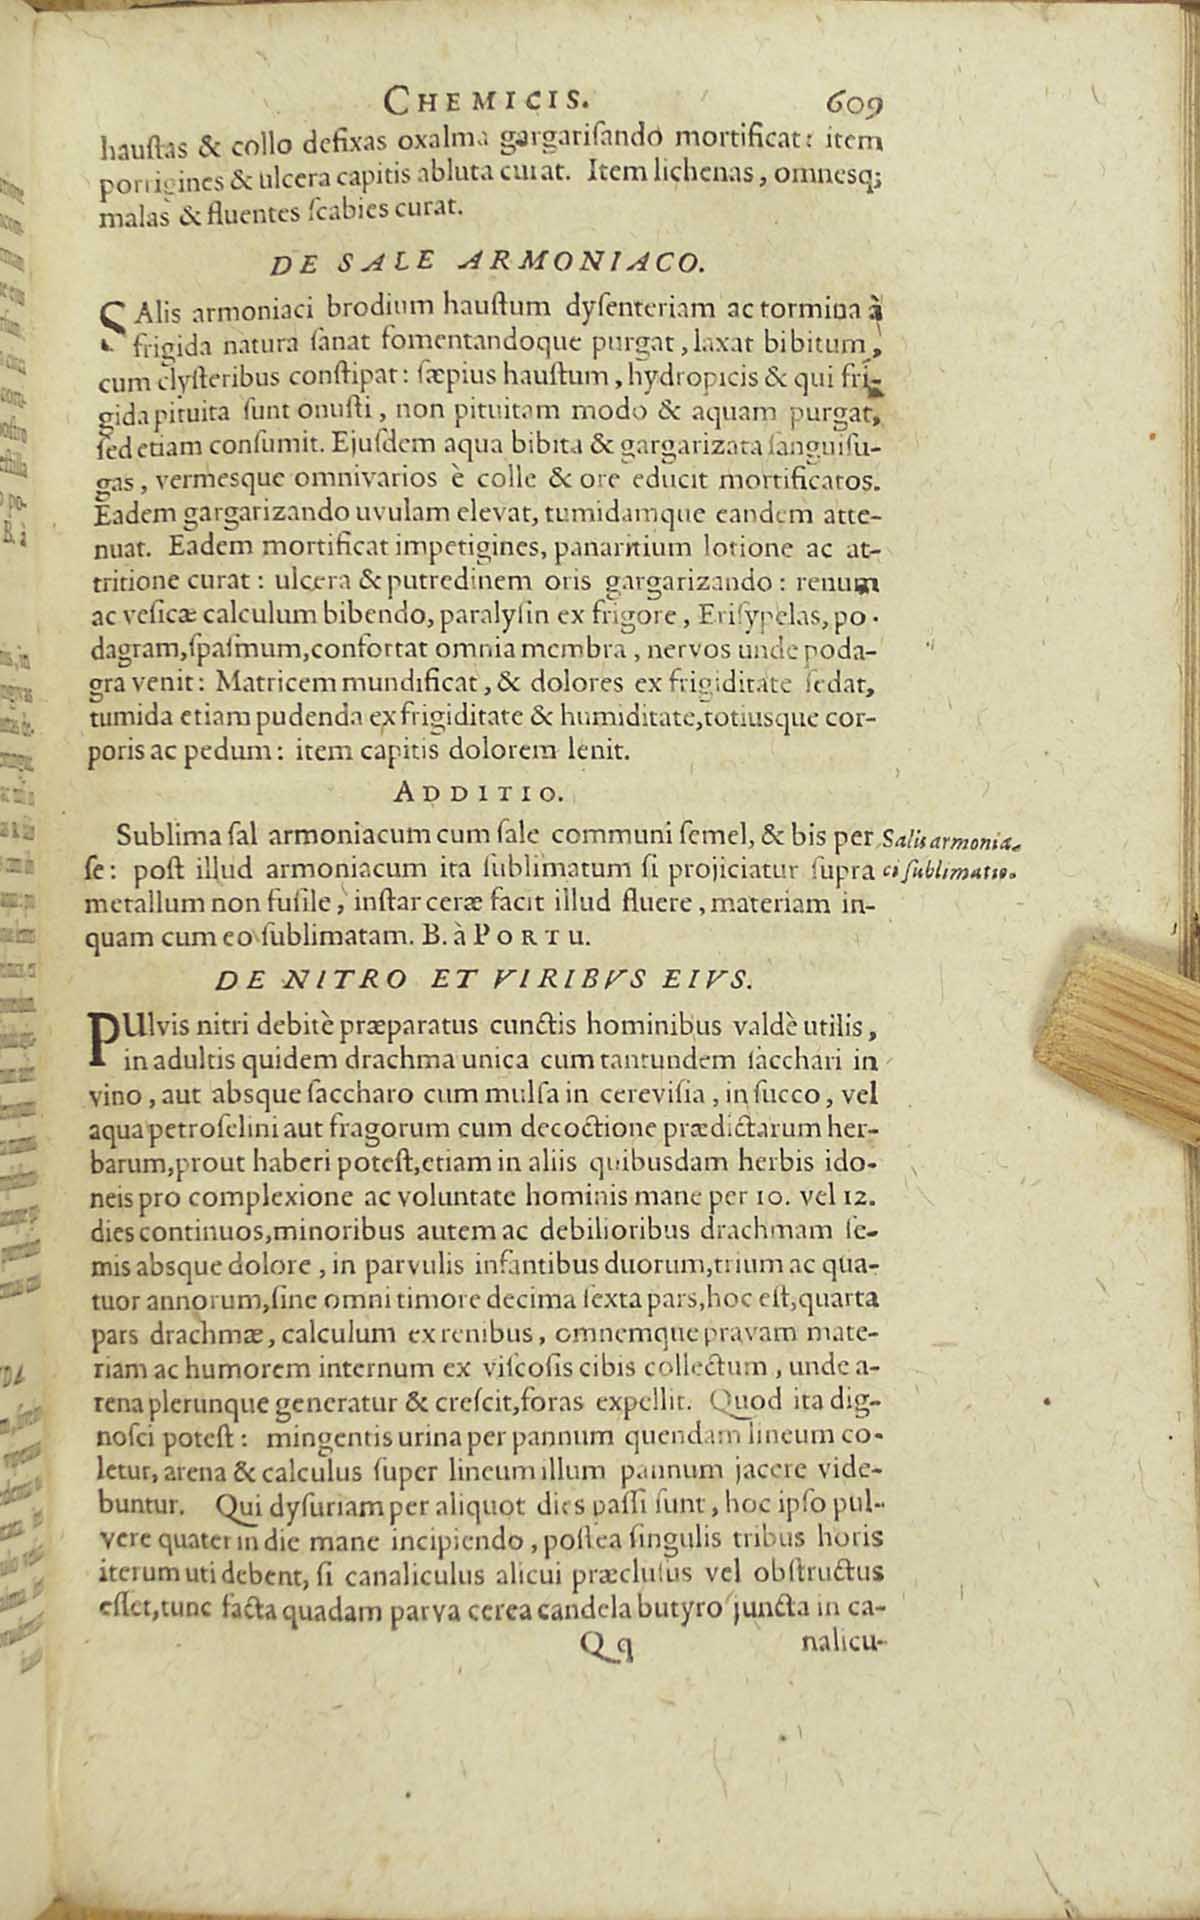 CHEMICIS. 609
hauſtas & collo defixas oxalma gargariſando mortificat: item
porrigines & ulcera capitis abluta curat. Item lichenas, omnesq;
malas & fluentes ſcabies curat.
DE SALE ARMONIACO.
SAlis armoniaci brodium hauſtum dyſenteriam ac tormina à
frigida natura ſanat fomentandoque purgat, laxat bibitum,
cum clyſteribus conſtipat: ſæpius hauſtum, hydropicis & qui fri-
gida pituita ſunt onuſti, non pituitam modo & aquam purgat,
ſed etiam conſumit. Ejuſdem aqua bibita & gargarizata ſanguiſu-
gas, vermesque omnivarios è colle & ore educit mortificatos.
Eadem gargarizando uvulam elevat, tumidamque eandem atte-
nuat. Eadem mortificat impetigines, panaritium lotione ac at-
tritione curat: ulcera & putredinem oris gargarizando: renum
ac veſicæ calculum bibendo, paralyſin ex frigore, Eriſypelas, po-
dagram, ſpaſmum, confortat omnia membra, nervos unde poda-
gra venit: Matricem mundificat, & dolores ex frigiditate ſedat,
tumida etiam pudenda ex frigiditate & humiditate, totiusque cor-
poris ac pedum: item capitis dolorem lenit.
ADDITIO.
Sublima ſal armoniacum cum ſale communi ſemel, & bis per
ſe: poſt illud armoniacum ita ſublimatum ſi projiciatur ſupra
metallum non fuſile, inſtar ceræ facit illud fluere, materiam in-
quam cum eo ſublimatam. B. à PORTU.
Salis armonia-
ci ſublimatio.
DE NITRO ET VIRIBVS EIVS.
PUlvis nitri debitè præparatus cunctis hominibus valdè utilis,
in adultis quidem drachma unica cum tantundem ſacchari in
vino, aut absque ſaccharo cum mulſa in cereviſia, in ſucco, vel
aqua petroſelini aut fragorum cum decoctione prædictarum her-
barum, prout haberi poteſt, etiam in aliis quibusdam herbis ido-
neis pro complexione ac voluntate hominis mane per 10. vel 12.
dies continuos, minoribus autem ac debilioribus drachmam ſe-
mis absque dolore, in parvulis infantibus duorum, trium ac qua-
tuor annorum, ſine omni timore decima ſexta pars, hoc eſt, quarta
pars drachmæ, calculum ex renibus, omnemque pravam mate-
riam ac humorem internum ex viſcoſis cibis collectum, unde a-
rena plerunque generatur & creſcit, foras expellit. Quod ita dig-
noſci poteſt: mingentis urina per pannum quendam lineum co-
letur, arena & calculus ſuper lineum illum pannum jacere vide-
buntur. Qui dyſuriam per aliquot dies paſſi ſunt, hoc ipſo pul-
vere quater in die mane incipiendo, poſtea ſingulis tribus horis
iterum uti debent, ſi canaliculus alicui præcluſus vel obſtructus
eſſet, tunc facta quadam parva cerea candela butyro juncta in ca-
Qq nalicu-